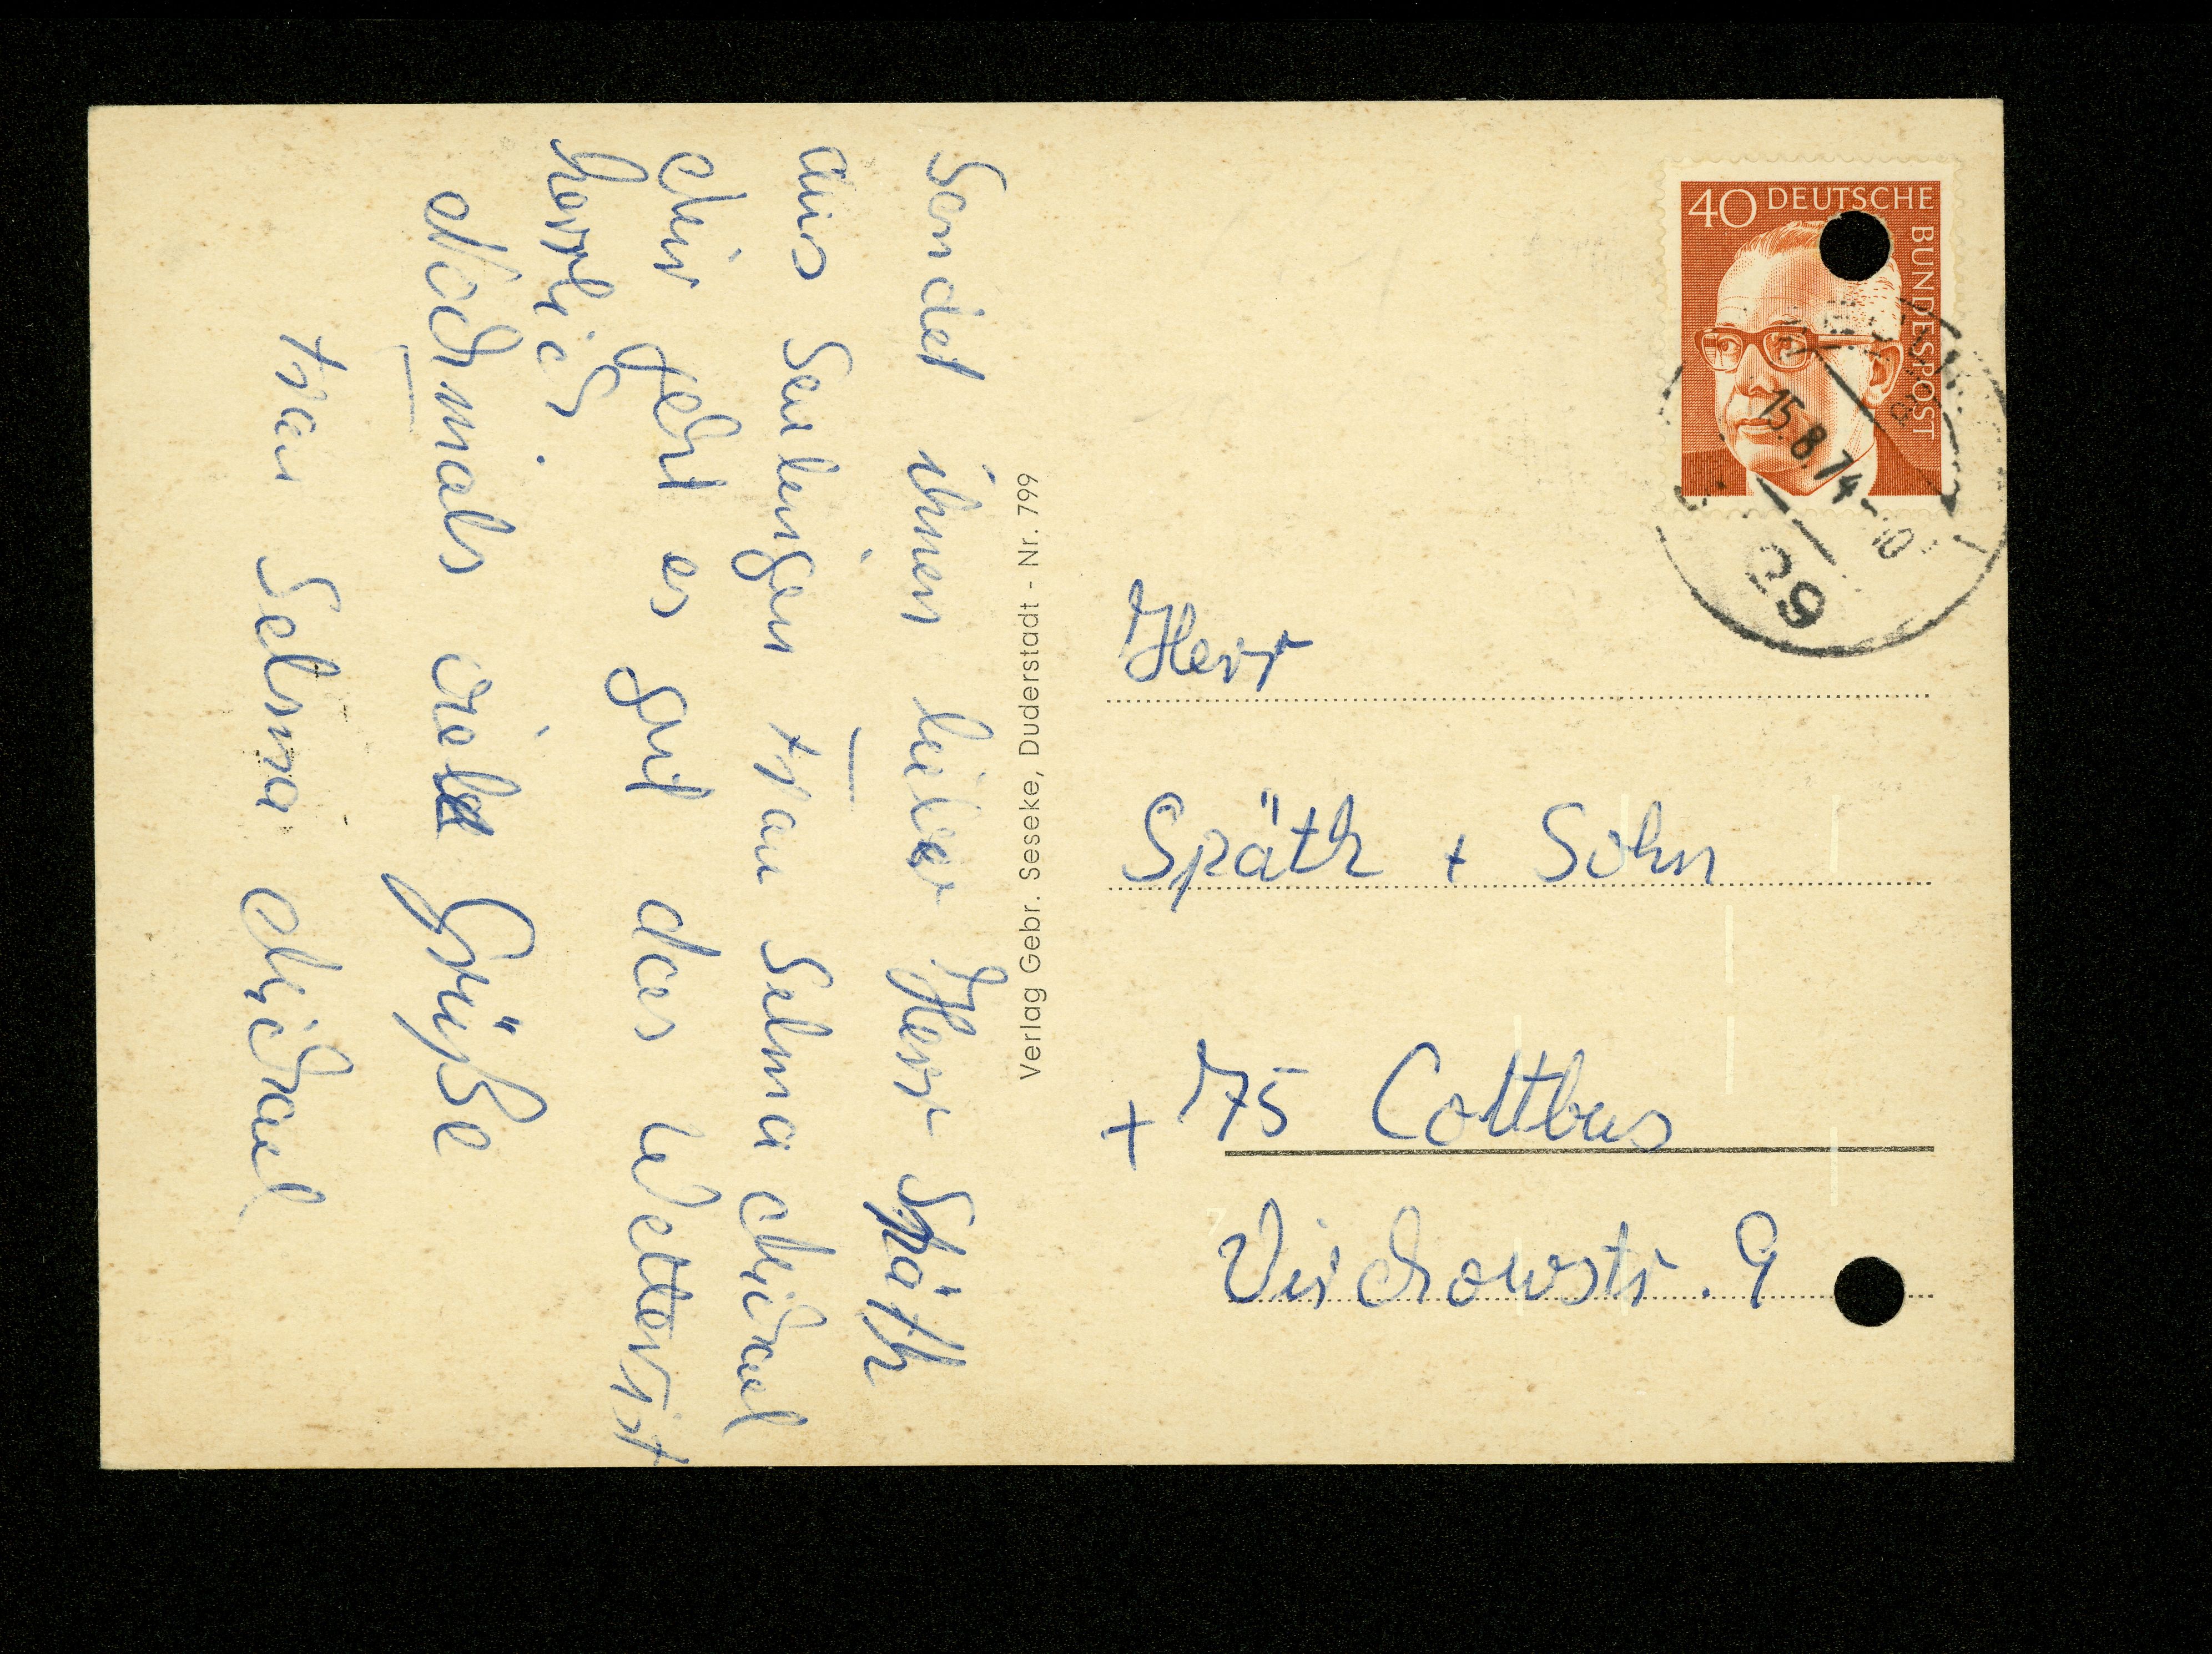 Sendet ihnen lieber Herr Späth
aus Seulingen Frau Selma Michael
Mir geht es gut das Wetter ist
herrlich.
Nochmals viele Grüße
Frau Selma Michael
Verlag Gebr. Seseke, Duderstadt - Nr. 799
40 DEUTSCHE BUNDESPOST
15.8.74-10
Herr
Späth + Sohn
+ 75 Cottbus
Virchowstr. 9